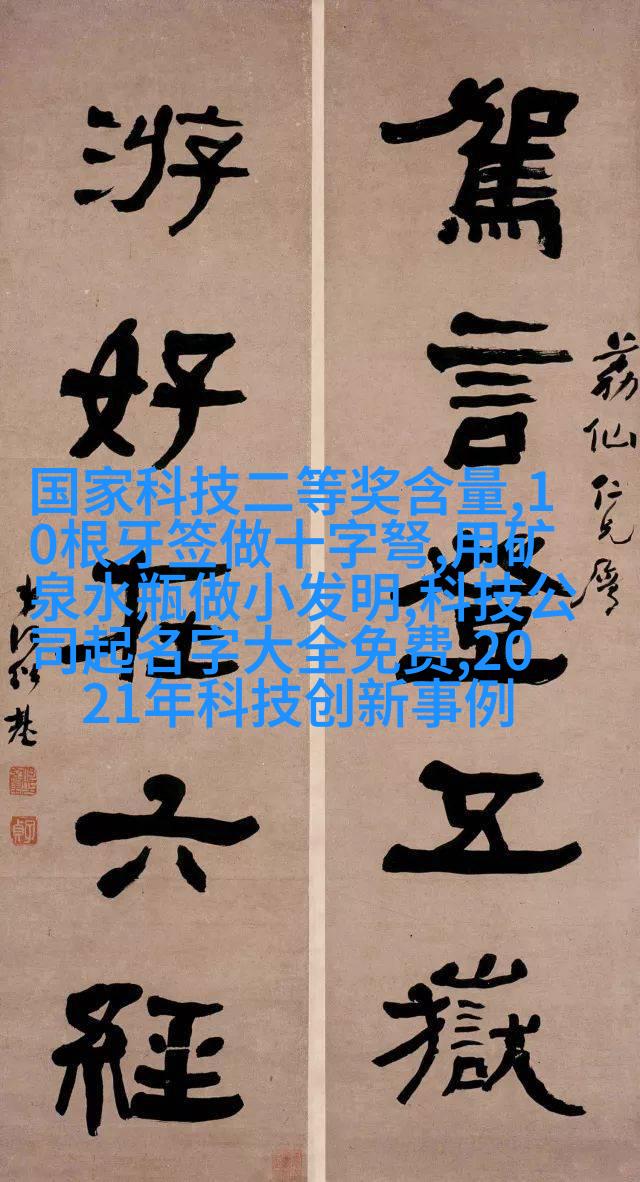 荔仙仁兄屬
駕言登五嶽
游好在六經
何紹基
子貞
国家科技二等奖含量,1
0根牙签做十字弩,用矿
泉水瓶做小发明,科技公
司起名字大全免费,20
21年科技创新事例